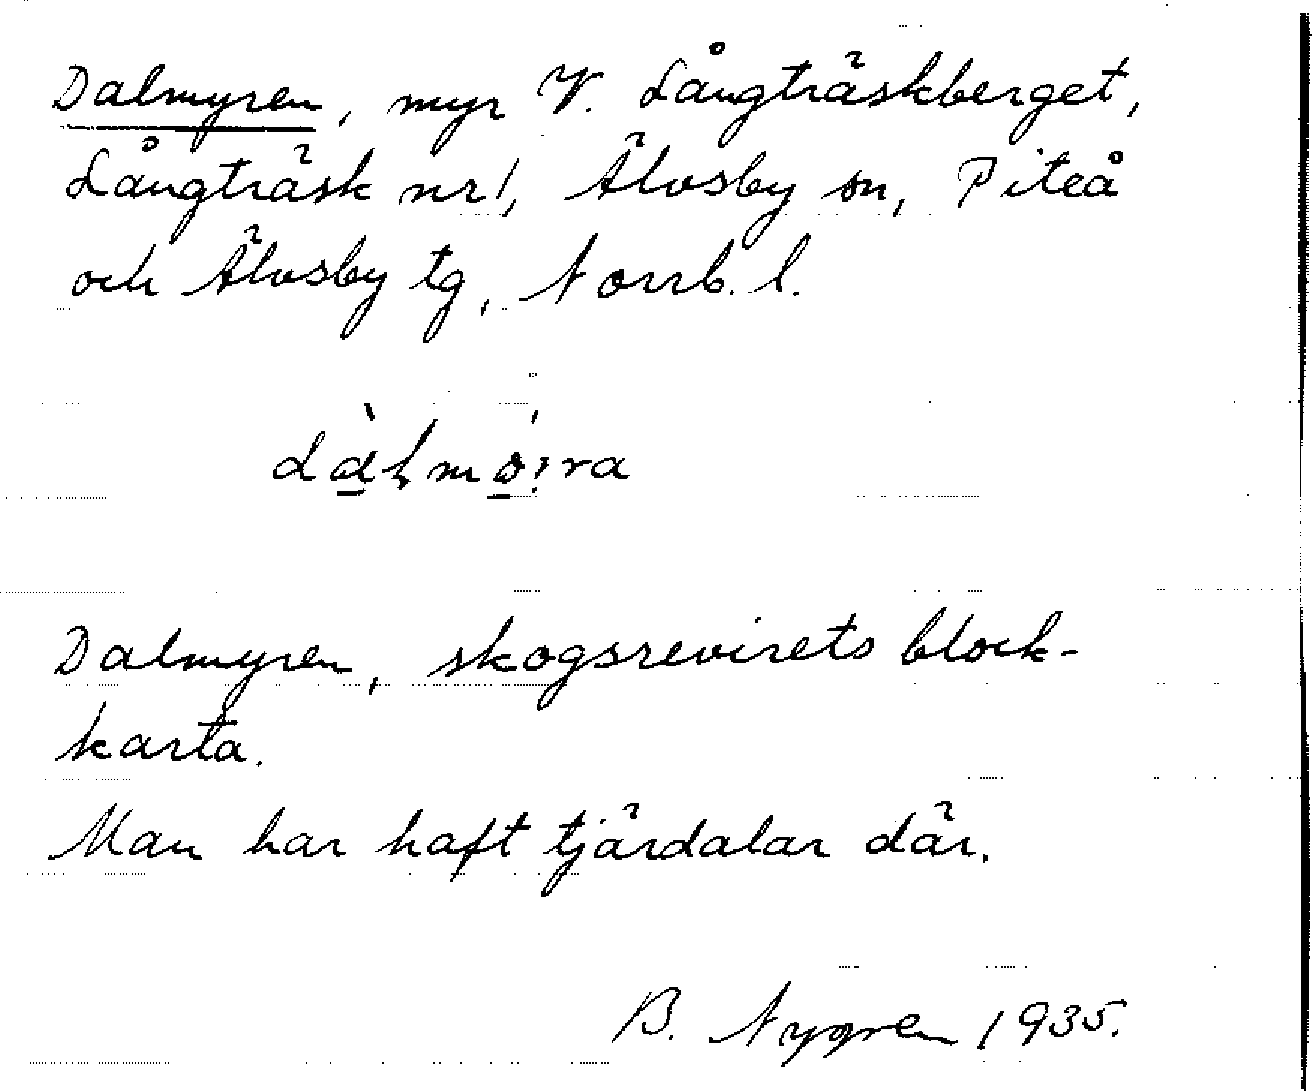 Dalmyren, myr V. Långträskberget,
Långträsk nr 1, Älvsby sn, Piteå
och Älvsby tg, Norrb. l.
Dalmyren, skogsrevirets block-
karta.
Man har haft tjärdalar där.
B. Nygren 1935.